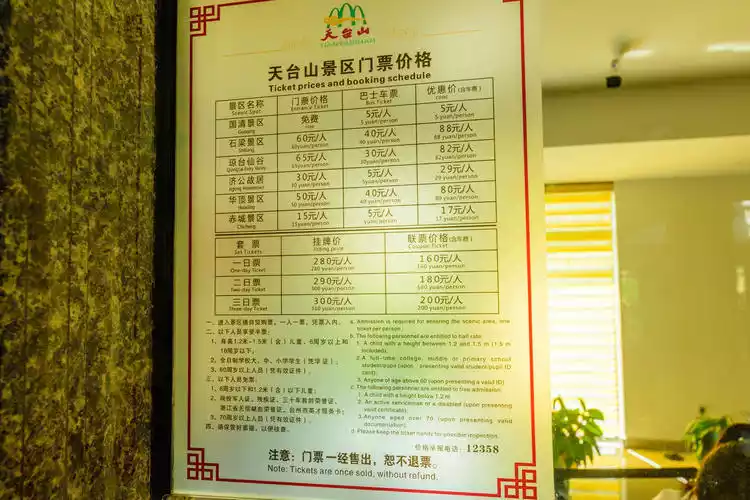 天台山
天台山景区门票价格
Ticket prices and booking schedule
景区名称 门票价格 巴士车票 优惠价(含车票)
Scenic Spot Entrance Ticket Bus Ticket
国清景区 免费 5元/人 5元/人
Guoqing free 5 yuan/person 5 yuan/person
石梁景区 60元/人 40元/人 88元/人
Shiliang 60yuan/person 40 yuan/person 88 yuan/person
琼台仙谷 65元/人 30元/人 82元/人
65yuan/person 30yuan/person 82yuan/person
济公故居 30元/人 5元/人 29元/人
30 yuan/person 5yuan/person 29 yuan/person
华顶景区 50元/人 40元/人 80元/人
Huading 50 yuan/person 40 yuan/person 80 yuan/person
赤城景区 15元/人 5元/人 17元/人
Chicheng 15yuan/person 5 yuan/person 17 yuan/person
套票 挂牌价 联票价格(含车票)
Set Tickets listing price Coupon Ticket
一日票 280元/人 160元/人
One-day Ticket 280 yuan/person 160 yuan/person
二日票 290元/人 180元/人
Two-day Ticket yuan/person 180 yuan/person
三日票 300元/人 200元/人
Three-day Ticket yuan/person 200 yuan/person
一、进入景区须持契购票，一人一票，凭票入内。
二、以下人员享受半票：
1、身高1.2米-1.5米（含）儿童，6周岁以上和
18周岁以下；
2、全日制学校大、中、小学学生（凭学证）；
3、60周岁以上人员（凭有效证件）。
三、以下人员免票：
1、6周岁以下和1.2米（含）以下儿童；
2、现役军人证、残疾证、三十年教龄荣誉证、
浙江省无偿献血荣誉证、台州市英才服务卡；
3、70周岁以上人员（凭有效证件）。
四、请保管好票据，以便检查。
a. Admission is required for entering the scenic area, one
ticket per person.
b. The following personnel are entitled to half rate:
1. A child with a height between 1.2 and 1.5 m (1.5 m
included).
2. A full-time college, middle or primary school
student/pupil (upon presenting valid student/pupil ID
card);
3. Anyone of age above 60 (upon presenting a valid ID)
c. The following personnel are entitled to free admission:
1. A child with a height below 1.2 m
2. An active serviceman or a disabled (upon presenting
valid certificate).
3. Anyone aged over 70 (upon presenting valid
documentation).
d. Please keep the ticket handy for inspection.
价格举报电话：12358
注意：门票一经售出，恕不退票。
Note: Tickets are once sold, without refund.